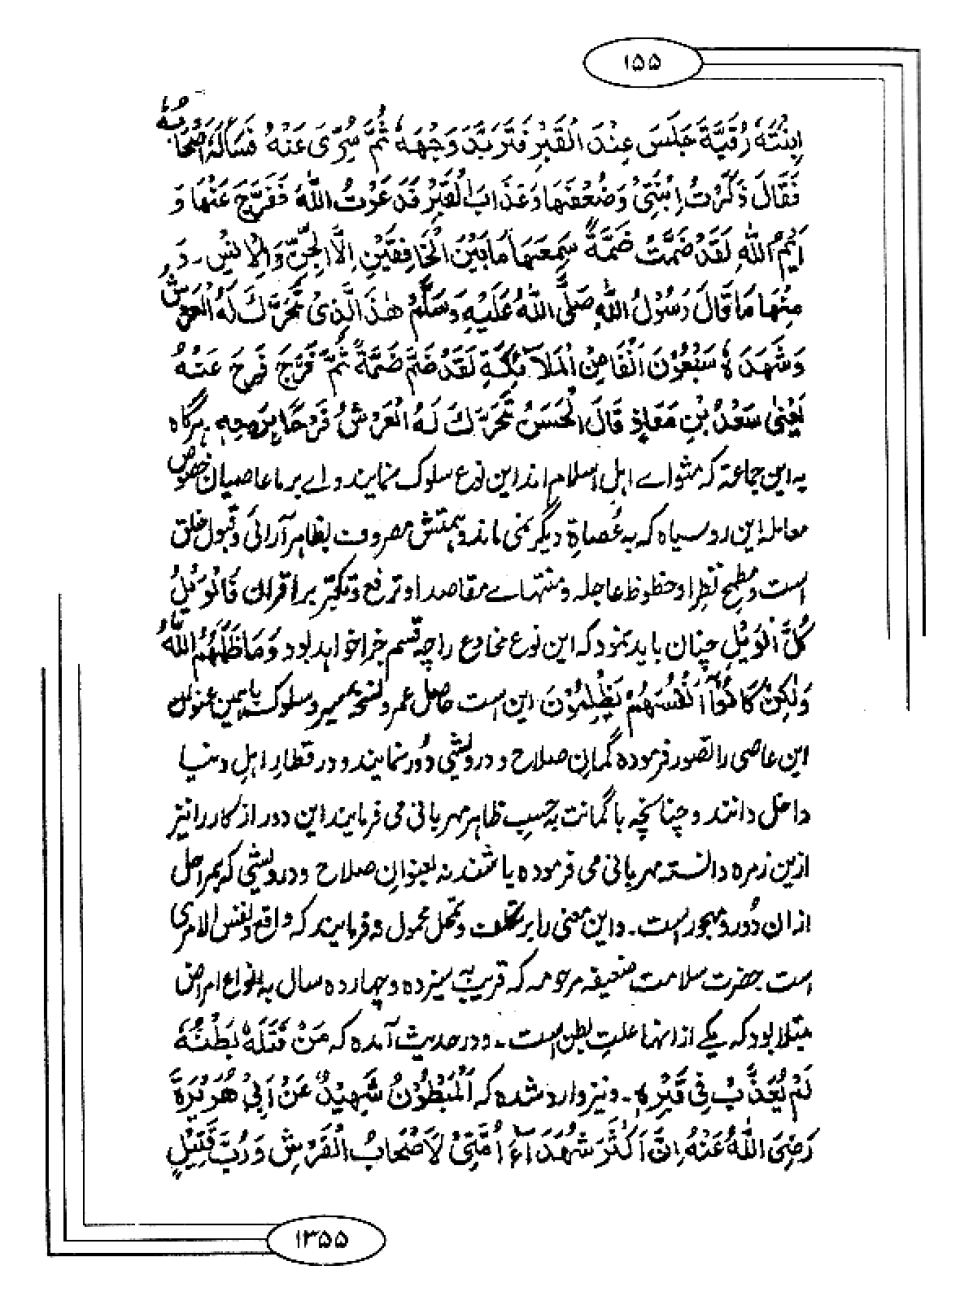 ۱۵۵
اِبْنَتِهٖ رُقَيَّةَ جَلَسَ عِنْدَ الْقَبْرِ فَتَرَبَّدَ وَجْهُهٗ ثُمَّ سُرِّىَ عَنْهُ فَسَأَلَهٗ اَصْحَابُهٗ
فَقَالَ ذَكَرْتُ اِبْنَتِىْ وَضُعْفَهَا وَعَذَابَ الْقَبْرِ فَدَعَوْتُ اللهَ فَفَرَّجَ عَنْهَا وَ
اَيْمُ اللهِ لَقَدْ ضُمَّتْ ضَمَّةً سَمِعَهَا مَا بَيْنَ الْخَافِقَيْنِ اِلَّا الْجِنَّ وَالْاِنْسَ ـ وَ
مِنْهَا مَا قَالَ رَسُوْلُ اللهِ صَلَّى اللهُ عَلَيْهِ وَسَلَّمَ هٰذَا الَّذِىْ تَحَرَّكَ لَهُ الْعَرْشُ
وَشَهِدَهٗ سَبْعُوْنَ اَلْفًا مِنَ الْمَلَآئِكَةِ لَقَدْ ضُمَّ ضَمَّةً ثُمَّ فَرَّجَ فَرَحَ عَنْهُ
يَعْنِىْ سَعْدَ بْنِ مَعَاذٍ قَالَ الْحَسَنُ تَحَرَّكَ لَهُ الْعَرْشُ فَرْحًا بِرُوْحِهٖ ہرگاہ
بہ این جماعۃ کہ مقتدائے اہلِ اسلام اند این نوع سلوک نمایند وائے برما عاصیان خصوص
معاملہ این روسیاہ کہ بہ عُصاۃِ دیگر نمی ماند و ہمتش مصروف بظاہر آرائی و قبولِ خلق
است و مطمحِ نظرِ او حظوظِ عاجلہ و منتہائے مقاصد او ترفع و تکبّر بر اقران فَالْوَيْلُ
كُلَّ الْوَيْلِ چنان باید نمود کہ این نوع مخادع را چہ قسم جزا خواہد بود وَمَا ظَلَمَهُمُ اللهُ
وَلٰكِنْ كَانُوْٓا اَنْفُسَهُمْ يَظْلِمُوْنَ این است حاصلِ عمر و نسخۂ سیر و سلوک بہمین عنوان
این عاصی را تصور فرمودہ گمانِ صلاح و درویشی دُور نمایند و در قطارِ اہلِ دنیا
داخل دانند و چنانچہ باگمانت بہ حسبِ ظاہر مہربانی می فرمایند این دور از کار را نیز
ازین زمرہ دانستہ مہربانی می فرمودہ باشند نہ بعنوانِ صلاح و درویشی کہ بمراحل
ازان دُور و مہجور است ـ و این معنی را بر تکلف و تحمل محمول نہ فرمایند کہ واقع و نفس الامری
است حضرت سلامت ضعیفہ مرحومہ کہ قریب سیزدہ و چہاردہ سال بہ انواع امراض
مبتلا بود کہ یکے از انہا علتِ بطن است ـ و در حدیث آمدہ کہ مَنْ قَتَلَهٗ بَطْنُهٗ
لَمْ يُعَذَّبْ فِىْ قَبْرِهٖ ـ و نیز وارد شدہ کہ اَلْمَبْطُوْنُ شَهِيْدٌ عَنْ اَبِىْ هُرَيْرَةَ
رَضِىَ اللهُ عَنْهُ اِنَّ اَكْثَرَ شُهَدَآءِ اُمَّتِىْ لَاَصْحَابُ الْفَرْشِ وَرُبَّ قَتِيْلٍ
۱۳۵۵